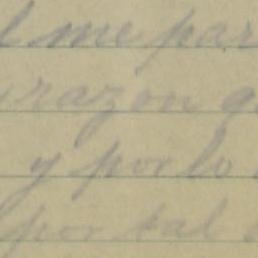 l me par
razon q
y por lo
por tal